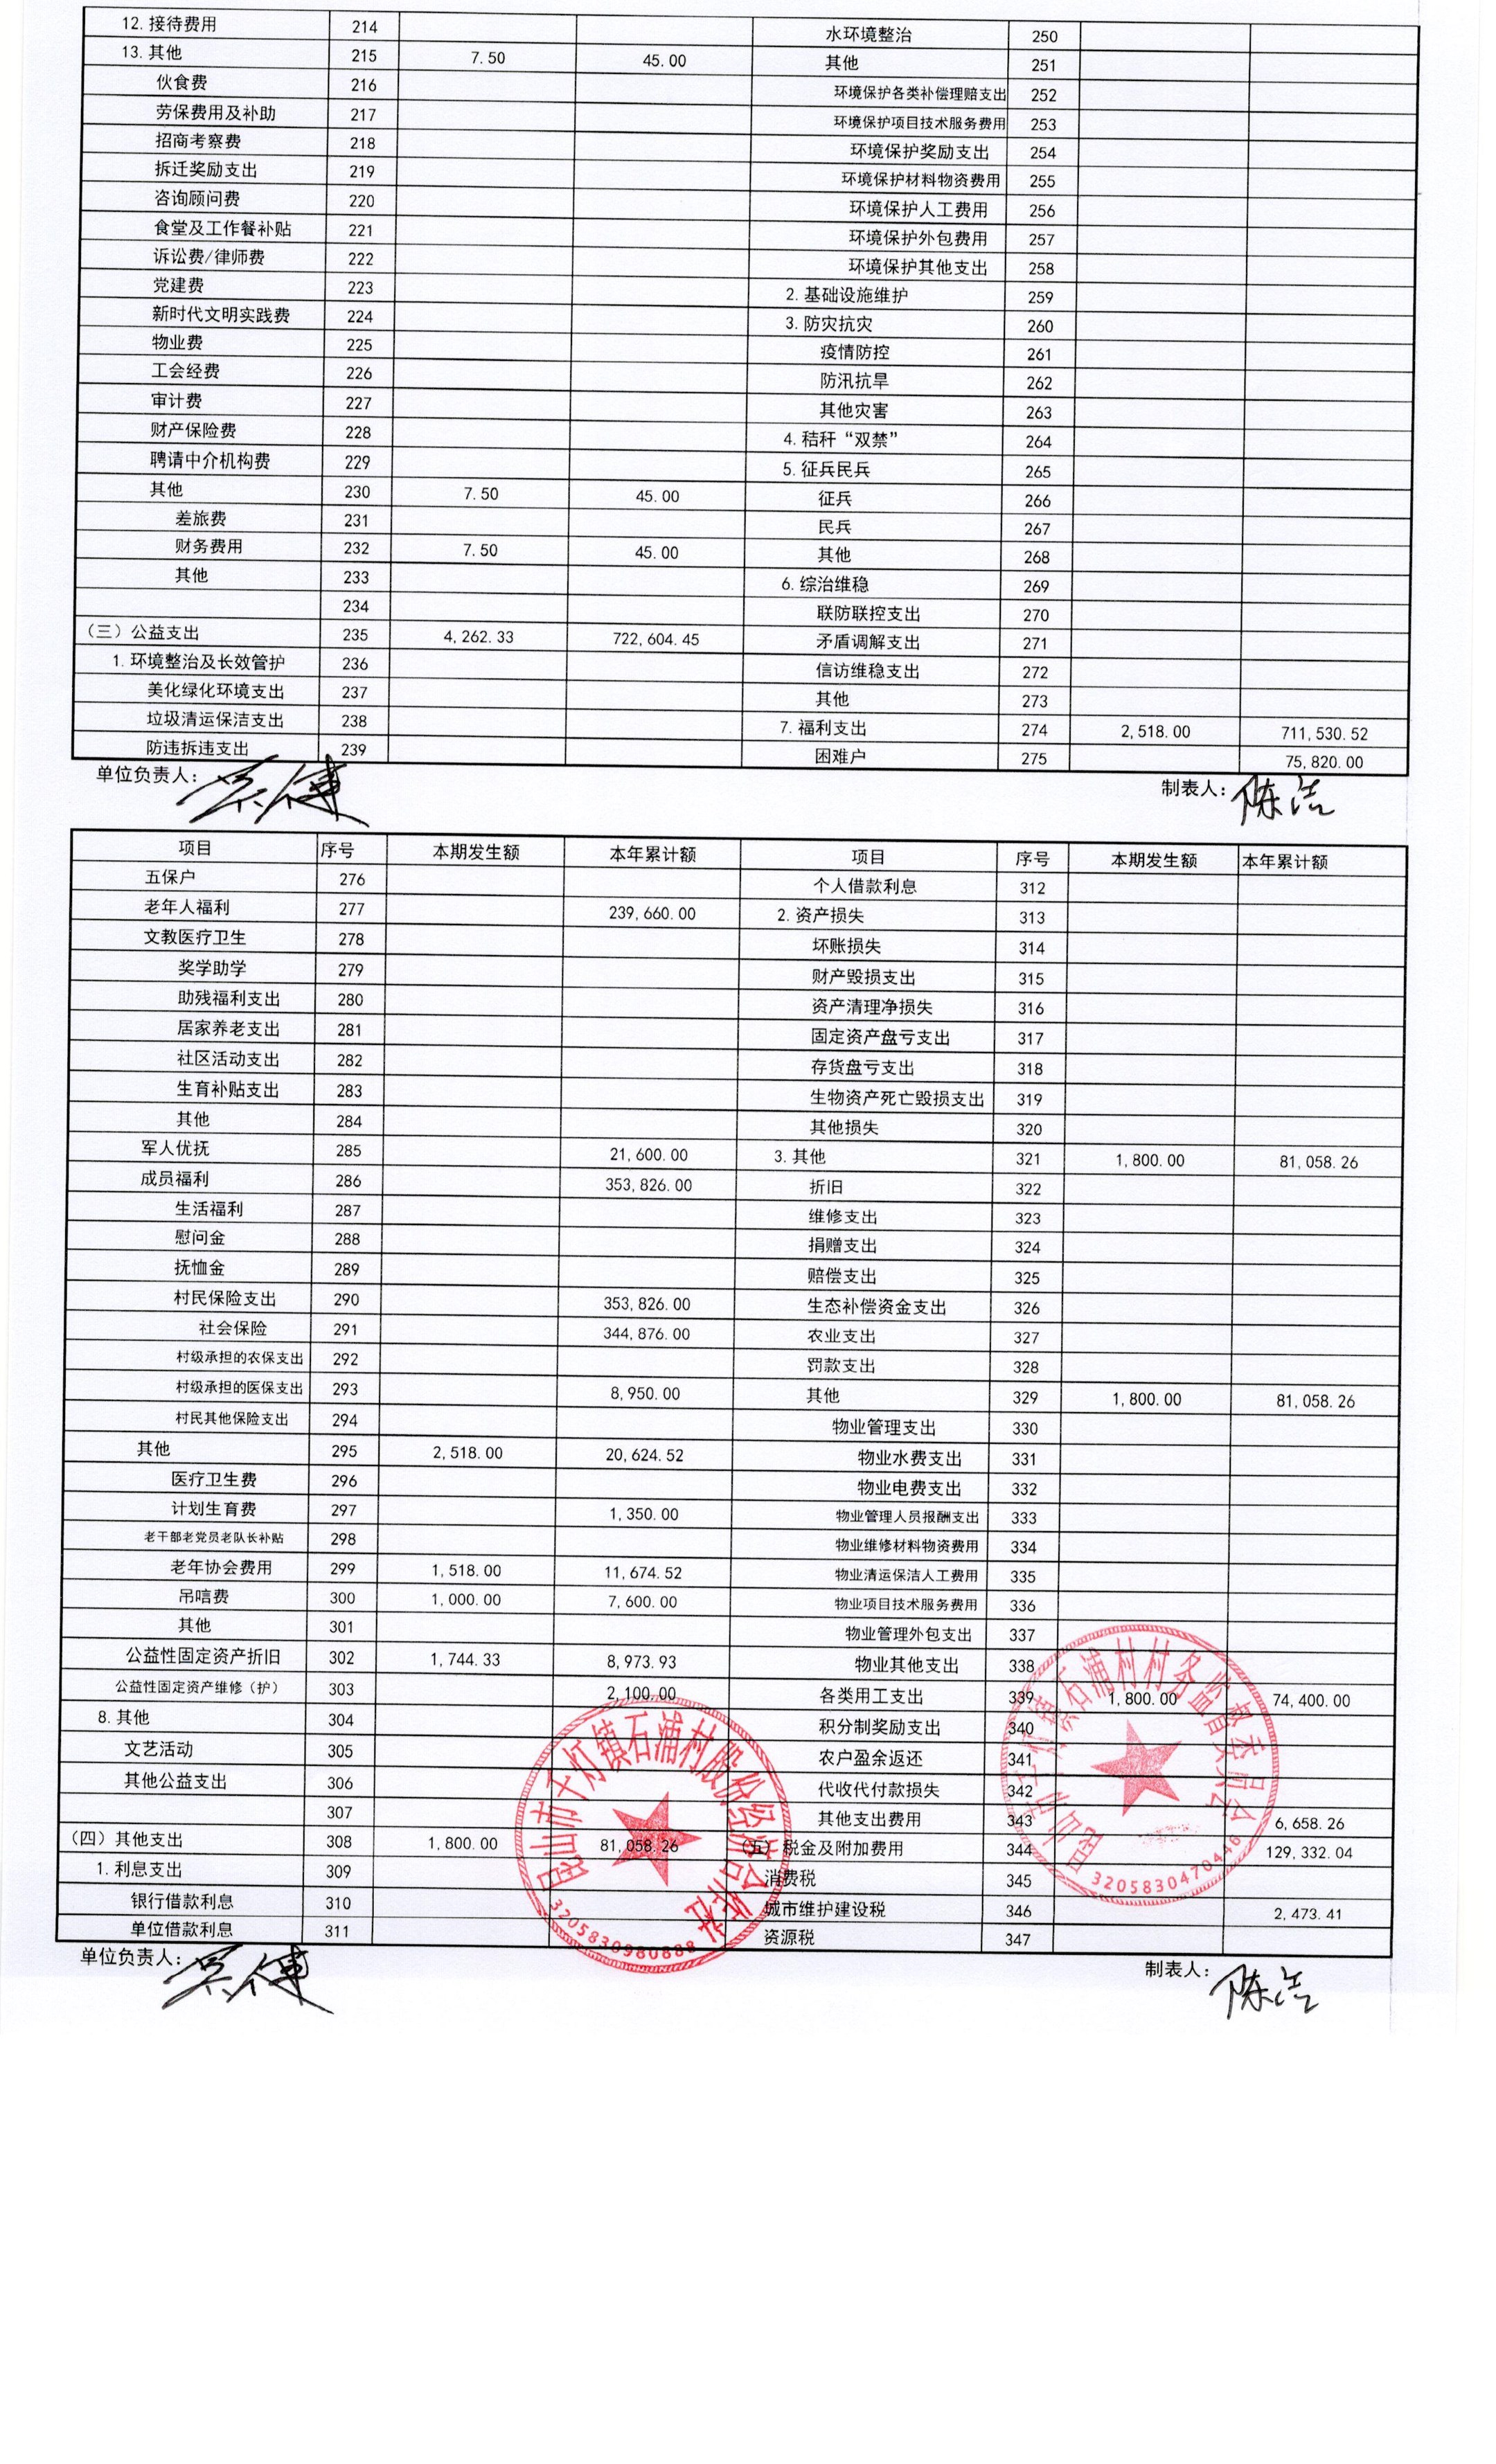 12. 接待费用 214 水环境整治 250
13. 其他 215 7.50 45.00 其他 251
伙食费 216 环境保护各类补偿理赔支出 252
劳保费用及补助 217 环境保护项目技术服务费用 253
招商考察费 218 环境保护奖励支出 254
拆迁奖励支出 219 环境保护材料物资费用 255
咨询顾问费 220 环境保护人工费用 256
食堂及工作餐补贴 221 环境保护外包费用 257
诉讼费/律师费 222 环境保护其他支出 258
党建费 223 2. 基础设施维护 259
新时代文明实践费 224 3. 防灾抗灾 260
物业费 225 疫情防控 261
工会经费 226 防汛抗旱 262
审计费 227 其他灾害 263
财产保险费 228 4. 秸秆“双禁” 264
聘请中介机构费 229 5. 征兵民兵 265
其他 230 7.50 45.00 征兵 266
差旅费 231 民兵 267
财务费用 232 7.50 45.00 其他 268
其他 233 6. 综治维稳 269
234 联防联控支出 270
（三）公益支出 235 4,262.33 722,604.45 矛盾调解支出 271
1. 环境整治及长效管护 236 信访维稳支出 272
美化绿化环境支出 237 其他 273
垃圾清运保洁支出 238 7. 福利支出 274 2,518.00 711,530.52
防违拆违支出 239 困难户 275 75,820.00
单位负责人： 制表人：陈洁
项目 序号 本期发生额 本年累计额 项目 序号 本期发生额 本年累计额
五保户 276 个人借款利息 312
老年人福利 277 239,660.00 2. 资产损失 313
文教医疗卫生 278 坏账损失 314
奖学助学 279 财产毁损支出 315
助残福利支出 280 资产清理净损失 316
居家养老支出 281 固定资产盘亏支出 317
社区活动支出 282 存货盘亏支出 318
生育补贴支出 283 生物资产死亡毁损支出 319
其他 284 其他损失 320
军人优抚 285 21,600.00 3. 其他 321 1,800.00 81,058.26
成员福利 286 353,826.00 折旧 322
生活福利 287 维修支出 323
慰问金 288 捐赠支出 324
抚恤金 289 赔偿支出 325
村民保险支出 290 353,826.00 生态补偿资金支出 326
社会保险 291 344,876.00 农业支出 327
村级承担的农保支出 292 罚款支出 328
村级承担的医保支出 293 8,950.00 其他 329 1,800.00 81,058.26
村民其他保险支出 294 物业管理支出 330
其他 295 2,518.00 20,624.52 物业水费支出 331
医疗卫生费 296 物业电费支出 332
计划生育费 297 1,350.00 物业管理人员报酬支出 333
老干部老党员老队长补贴 298 物业维修材料物资费用 334
老年协会费用 299 1,518.00 11,674.52 物业清运保洁人工费用 335
吊唁费 300 1,000.00 7,600.00 物业项目技术服务费用 336
其他 301 物业管理外包支出 337
公益性固定资产折旧 302 1,744.33 8,973.93 物业其他支出 338
公益性固定资产维修（护） 303 2,100.00 各类用工支出 339 1,800.00 74,400.00
8. 其他 304 积分制奖励支出 340
文艺活动 305 农户盈余返还 341
其他公益支出 306 代收代付款损失 342
307 其他支出费用 343 6,658.26
（四）其他支出 308 1,800.00 81,058.26 （五）税金及附加费用 344 129,332.04
1. 利息支出 309 消费税 345
银行借款利息 310 城市维护建设税 346 2,473.41
单位借款利息 311 资源税 347
昆山市千灯镇石浦村股份经济合作社
3205830980888
昆山市千灯镇石浦村村务监督委员会
3205830470446
单位负责人： 制表人：陈洁